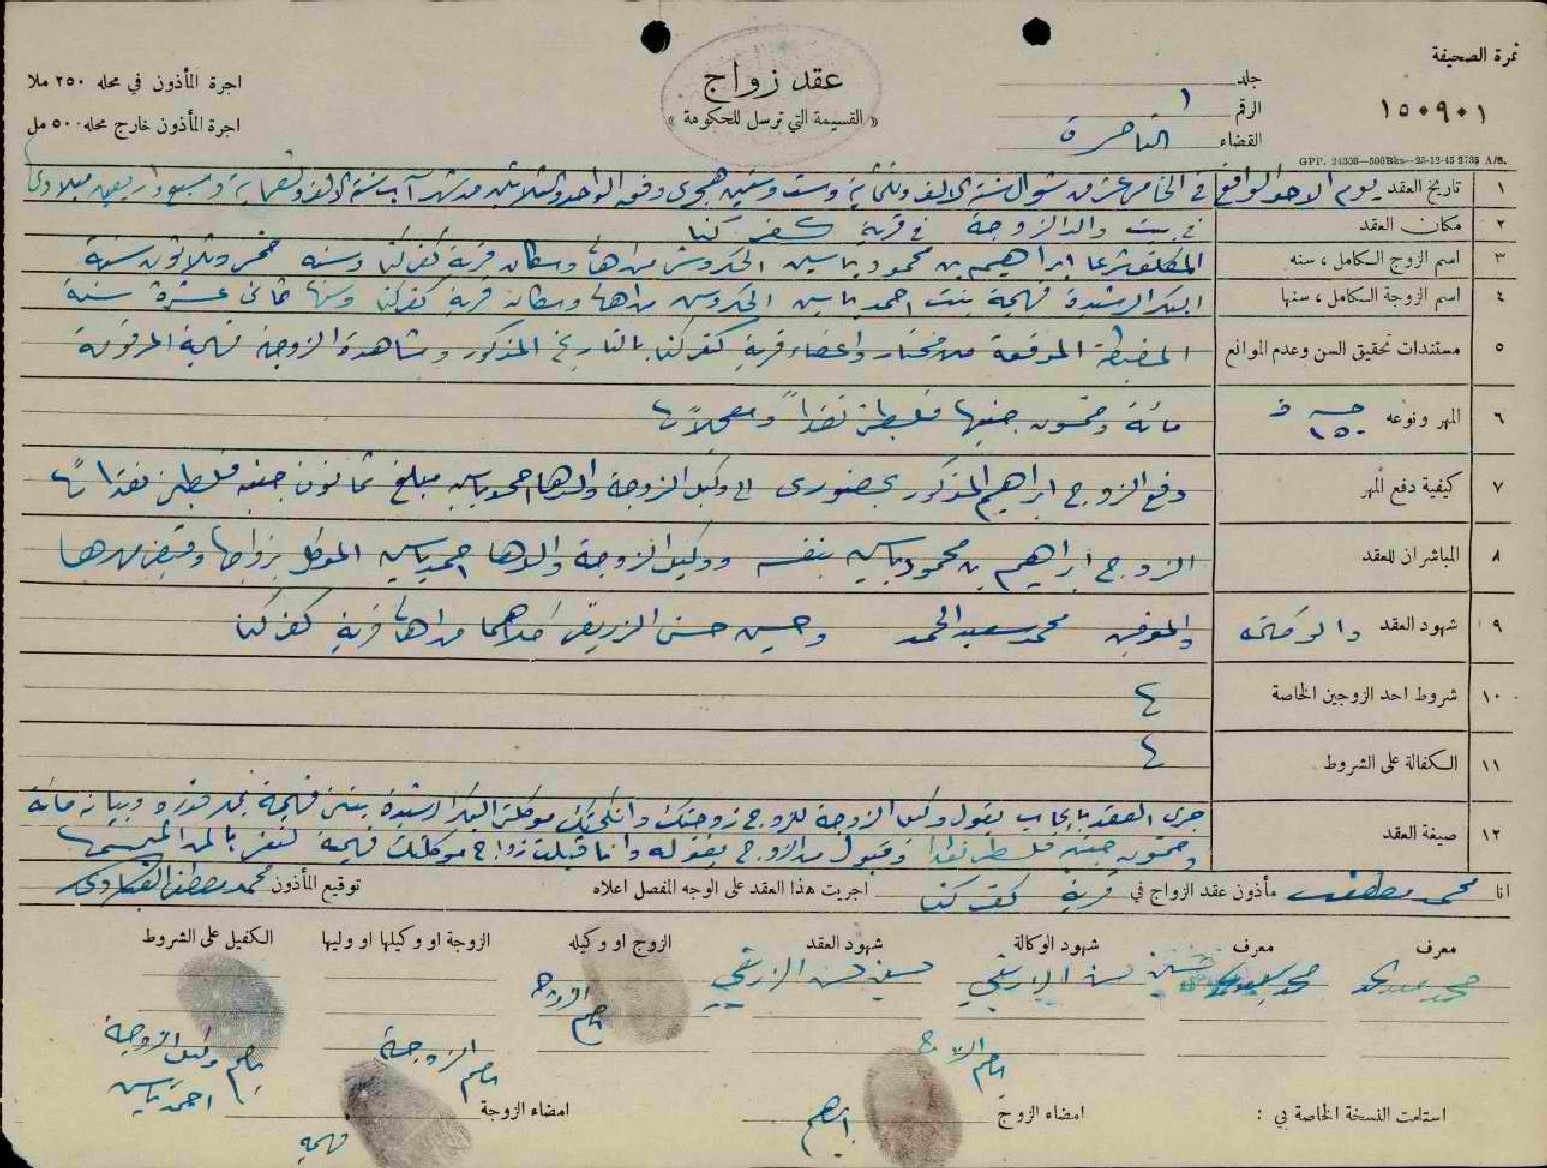 نمرة الصحيفة
١٥٠٩٠١
جلد
الرقم ١
القضاء الناصرة
عقد زواج
« القسيمة التي ترسل للحكومة »
اجرة المأذون في محله ٢٥٠ ملا
اجرة المأذون خارج محله ٥٠٠ مل
GPP. 24308—500Bks—28-12-45 2735 A/S.
١ تاريخ العقد يوم الاحد الواقع في الخامس عشر من شوال سنة الالف وثلثماية وست وستين هجري وفق الواحد والثلاثين من شهر آب سنة الالف وتسعماية وسبع واربعين ميلادي
٢ مكان العقد في بيت والد الزوجة في قرية كفر كنا
٣ اسم الزوج الكامل ، سنه المكلف شرعا ابراهيم بن محمود ياسين من اهالي وسكان قرية كفر كنا وسنه خمس وثلاثون سنة
٤ اسم الزوجة الكامل ، سنها البكر الرشيدة فهيمة بنت احمد ياسين من اهالي وسكان قرية كفر كنا وسنها ثماني عشرة سنة
٥ مستندات تحقيق السن وعدم الموانع المضبطة الموقعة من مختار واعضاء قرية كفر كنا بالتاريخ المذكور ومشاهدة الزوجة فهيمة المرقومة
٦ المهر ونوعه ١٥٠ مائة وخمسون جنيها فلسطينيا نقدا
٧ كيفية دفع المهر دفع الزوج ابراهيم المذكور بحضوري الى وكيل الزوجة والدها احمد ياسين مبلغ ثمانون جنيه فلسطيني نقدا
٨ المباشران للعقد الزوج ابراهيم بن محمود ياسين بنفسه ووكيل الزوجة والدها احمد ياسين الموكل بزواجها وقبض مهرها
٩ شهود العقد والوكالة محمد سعيد الحمد وحسين حسن من اهالي قرية كفر كنا
١٠ شروط احد الزوجين الخاصة
١١ الكفالة على الشروط
١٢ صيغة العقد جرى العقد بايجاب بقول وكيل الزوجة للزوج زوجتك وانكحتك موكلتي البكر الرشيدة بنتي فهيمة بمهر قدره وبيانه مائة
وخمسون جنيه فلسطيني نقدا وقبول من الزوج بقوله وانا قبلت زواج موكلتك فهيمة لنفسي بالمهر
انا محمد مصطفى مأذون عقد الزواج في قرية كفر كنا اجريت هذا العقد على الوجه المفصل اعلاه توقيع المأذون محمد مصطفى
معرف معرف شهود الوكالة شهود العقد الزوج او وكيله الزوجة او وكيلها او وليها الكفيل على الشروط
محمد سعيد الحمد محمد سعيد حسين حسن حسين حسن
الزوج
الزوجة
وكيل الزوجة
احمد ياسين
استلمت النسخة الخاصة بي : امضاء الزوج ابراهيم امضاء الزوجة
فهيمه